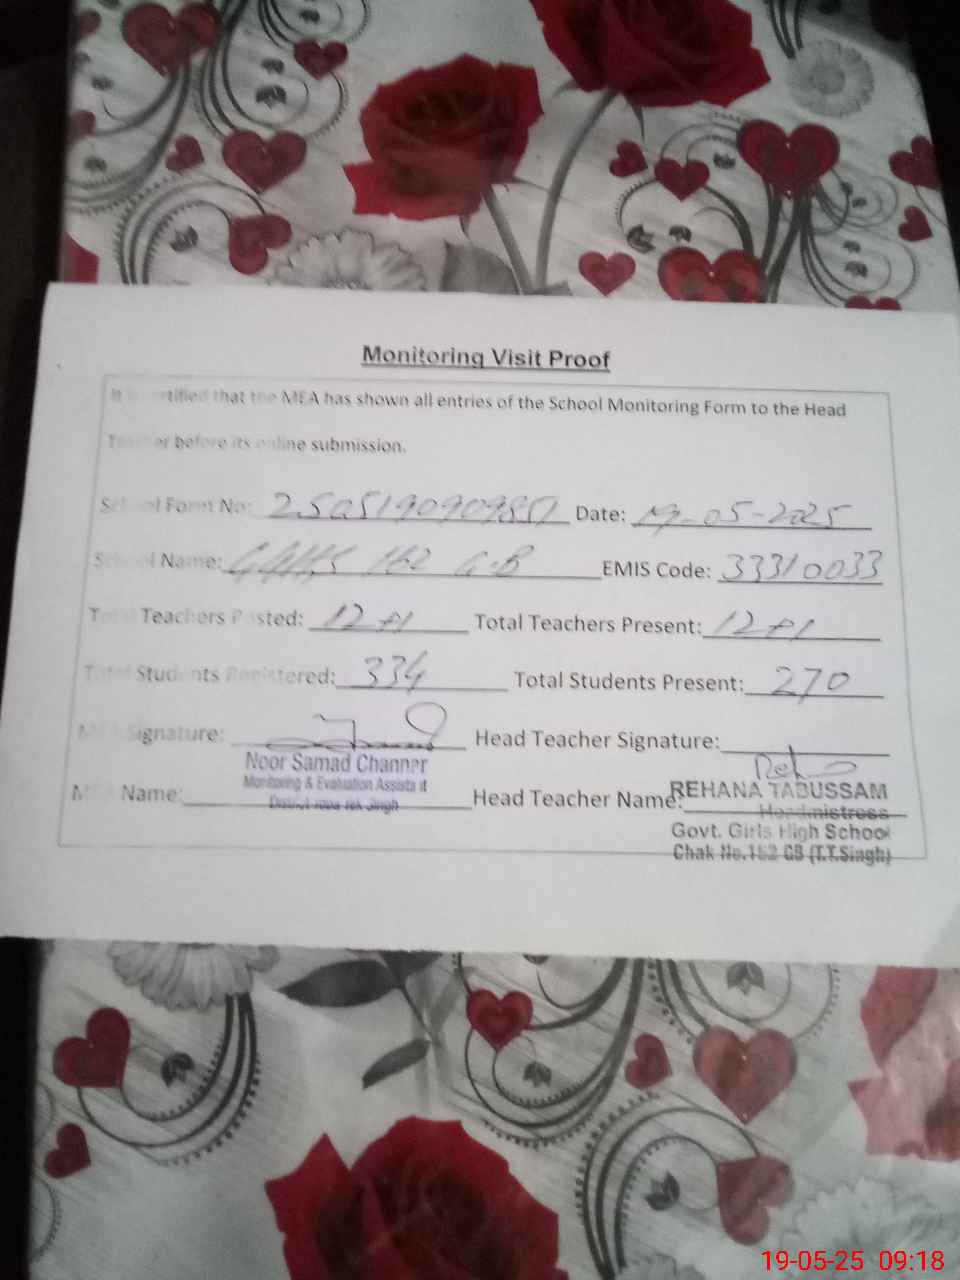 Monitoring Visit Proof
It is certified that the MEA has shown all entries of the School Monitoring Form to the Head
Teacher before its online submission.
School Form No: Date: 19-05-2025
School Name: GGHS 162 G.B EMIS Code: 33310033
Total Teachers Posted: 12+1 Total Teachers Present: 12+1
Total Students Registered: 334 Total Students Present: 270
MEA Signature: Head Teacher Signature:
Noor Samad Channer
Monitoring & Evaluation Assistant
District Toba Tek Singh
MEA Name: Head Teacher Name:
REHANA TABUSSAM
Headmistress
Govt. Girls High School
Chak No.162 GB (T.T.Singh)
19-05-25 09:18